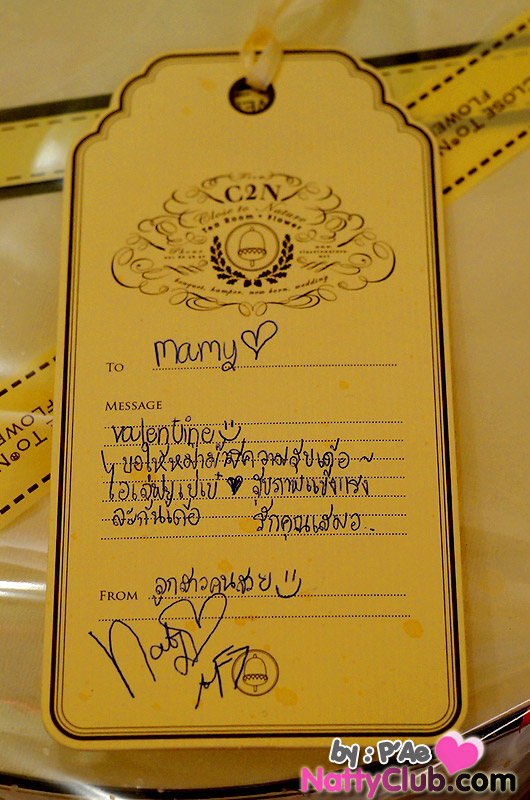 From
C2N
Close to Nature
Tea Room • Flower
Phone
www
bouquet, hamper, new born, wedding
To mamy ♡
Message
valentine
ขอให้หม่าม๊ามีความสุขเด้อ ~
สุขภาพแข็งแรง
ละกันเด้อ รักคุณเสมอ..
From ลูกสาวคนสวย
Natty
AF7
CLOSE TO N
FLOWE
CLOSE TO N
FLOWE
by : P'Ae
NattyClub.com